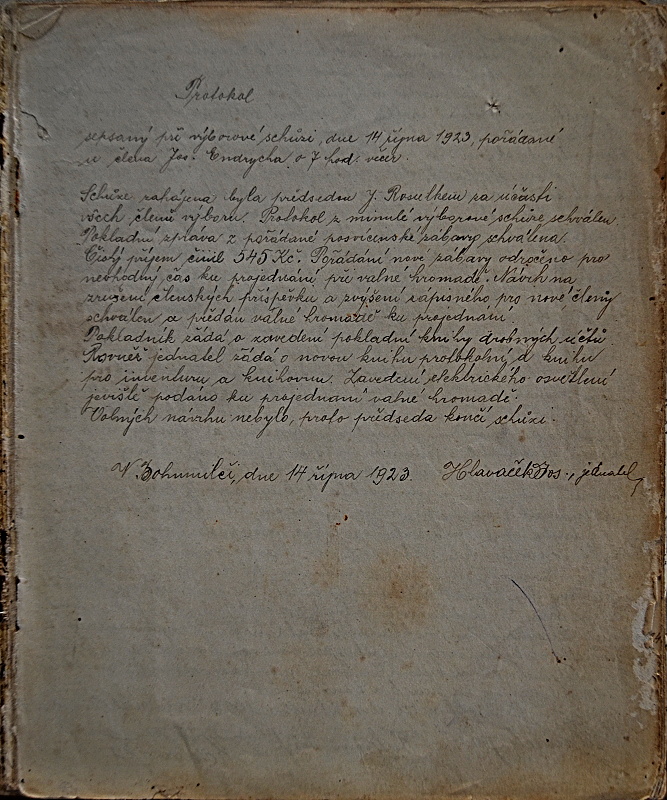 Protokol
sepsaný při výborové schůzi, dne 14 října 1923, pořádané
u člena Jos. Endrycha o 7 hod. večer.
Schůze zahájena byla předsedou J. Rosulkem za účasti
všech členů výboru. Protokol z minulé výborové schůze schválen.
Pokladní zpráva z pořádané posvícenské zábavy schválena.
Čistý příjem činil 545 Kč. Pořádání nové zábavy odročeno pro
nevhodný čas ku projednání při valné hromadě. Návrh na
zrušení členských příspěvků a zvýšení zápisného pro nové členy
schválen a předán valné hromadě ku projednání.
Pokladník žádá o zavedení pokladní knihy drobných účtů.
Rovněž jednatel žádá o novou knihu protokolní, a knihu
pro inventuru a knihovnu. Zavedení elektrického osvětlení
jeviště podáno ku projednání valné hromadě.
Volných návrhu nebylo, proto předseda končí schůzi.
V Bohumilči, dne 14 října 1923. Hlaváček Jos., jednatel